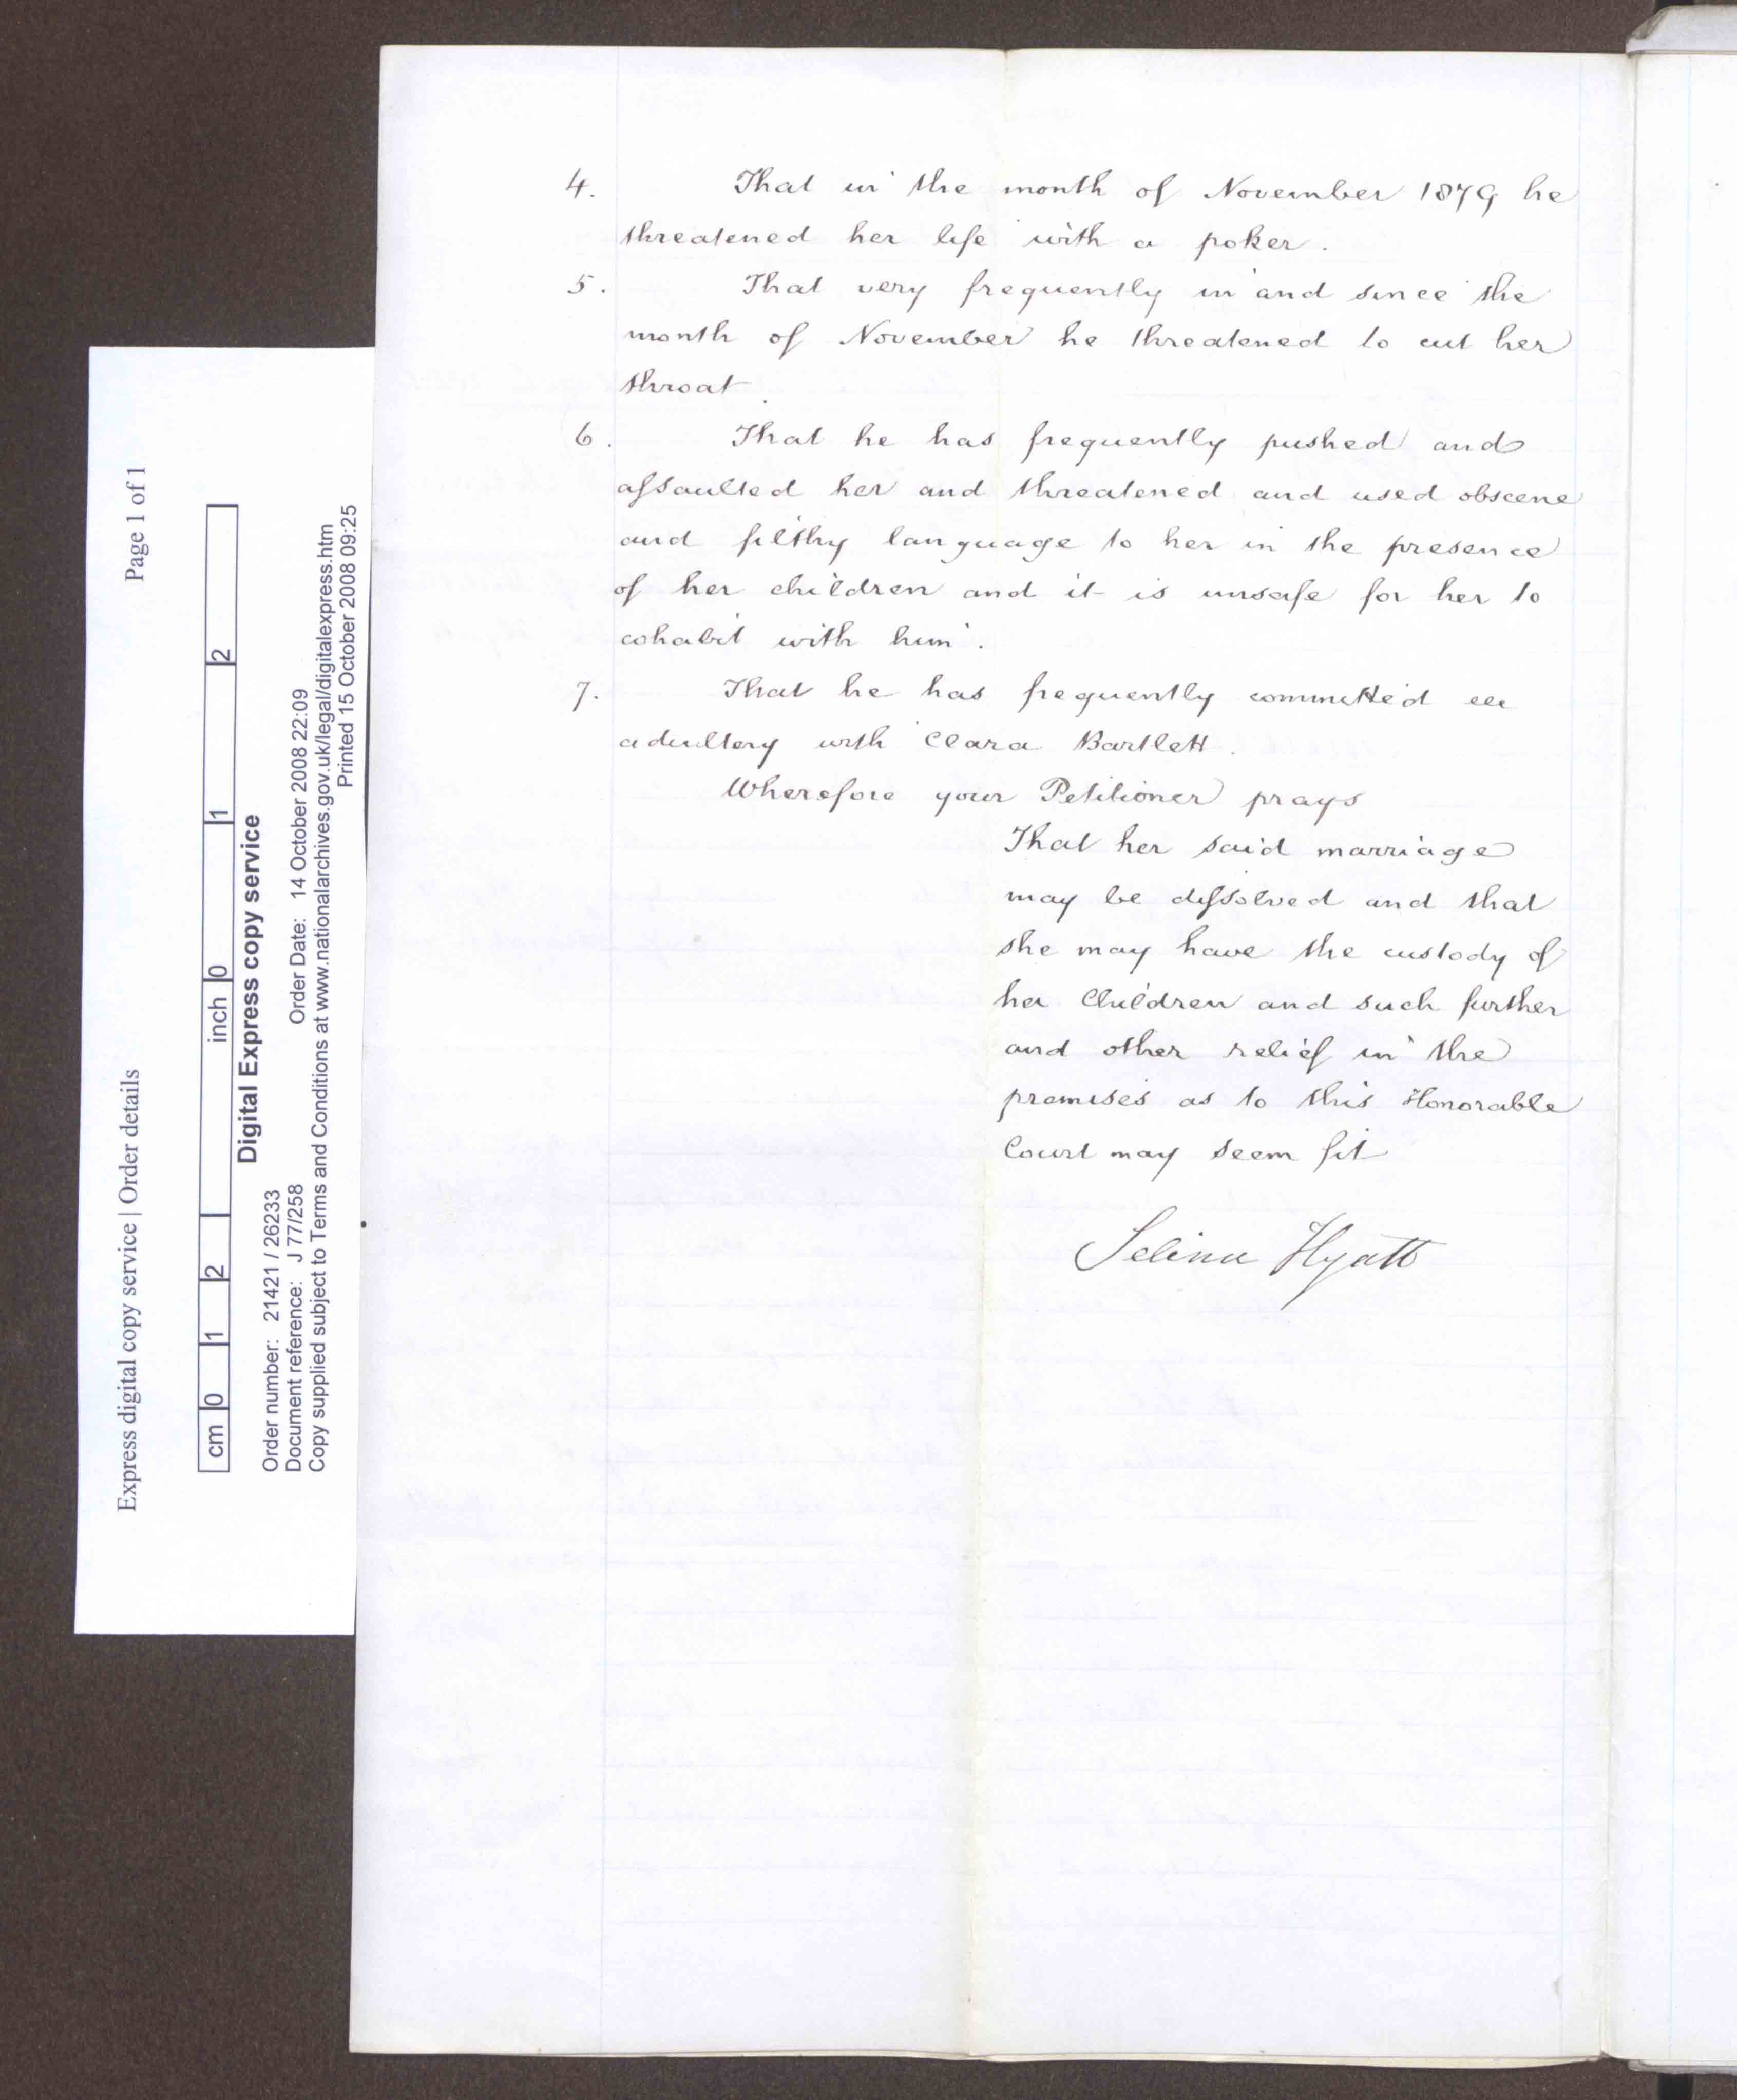 4. That in the month of November 1879 he
threatened her life with a poker.
5. That very frequently in and since the
month of November he threatened to cut her
throat.
6. That he has frequently pushed and
assaulted her and threatened and used obscene
and filthy language to her in the presence
of her children and it is unsafe for her to
cohabit with him.
7. That he has frequently committed
adultery with Clara Bartlett.
Wherefore your Petitioner prays
That her said marriage
may be dissolved and that
she may have the custody of
her Children and such further
and other relief in the
premises as to this Honorable
Court may seem fit
Selina Hyatt
Express digital copy service | Order details Page 1 of 1
cm 0 1 2 inch 0 1 2
Digital Express copy service
Order number: 21421 / 26233 Order Date: 14 October 2008 22:09
Document reference: J 77/258
Copy supplied subject to Terms and Conditions at www.nationalarchives.gov.uk/legal/digitalexpress.htm
Printed 15 October 2008 09:25